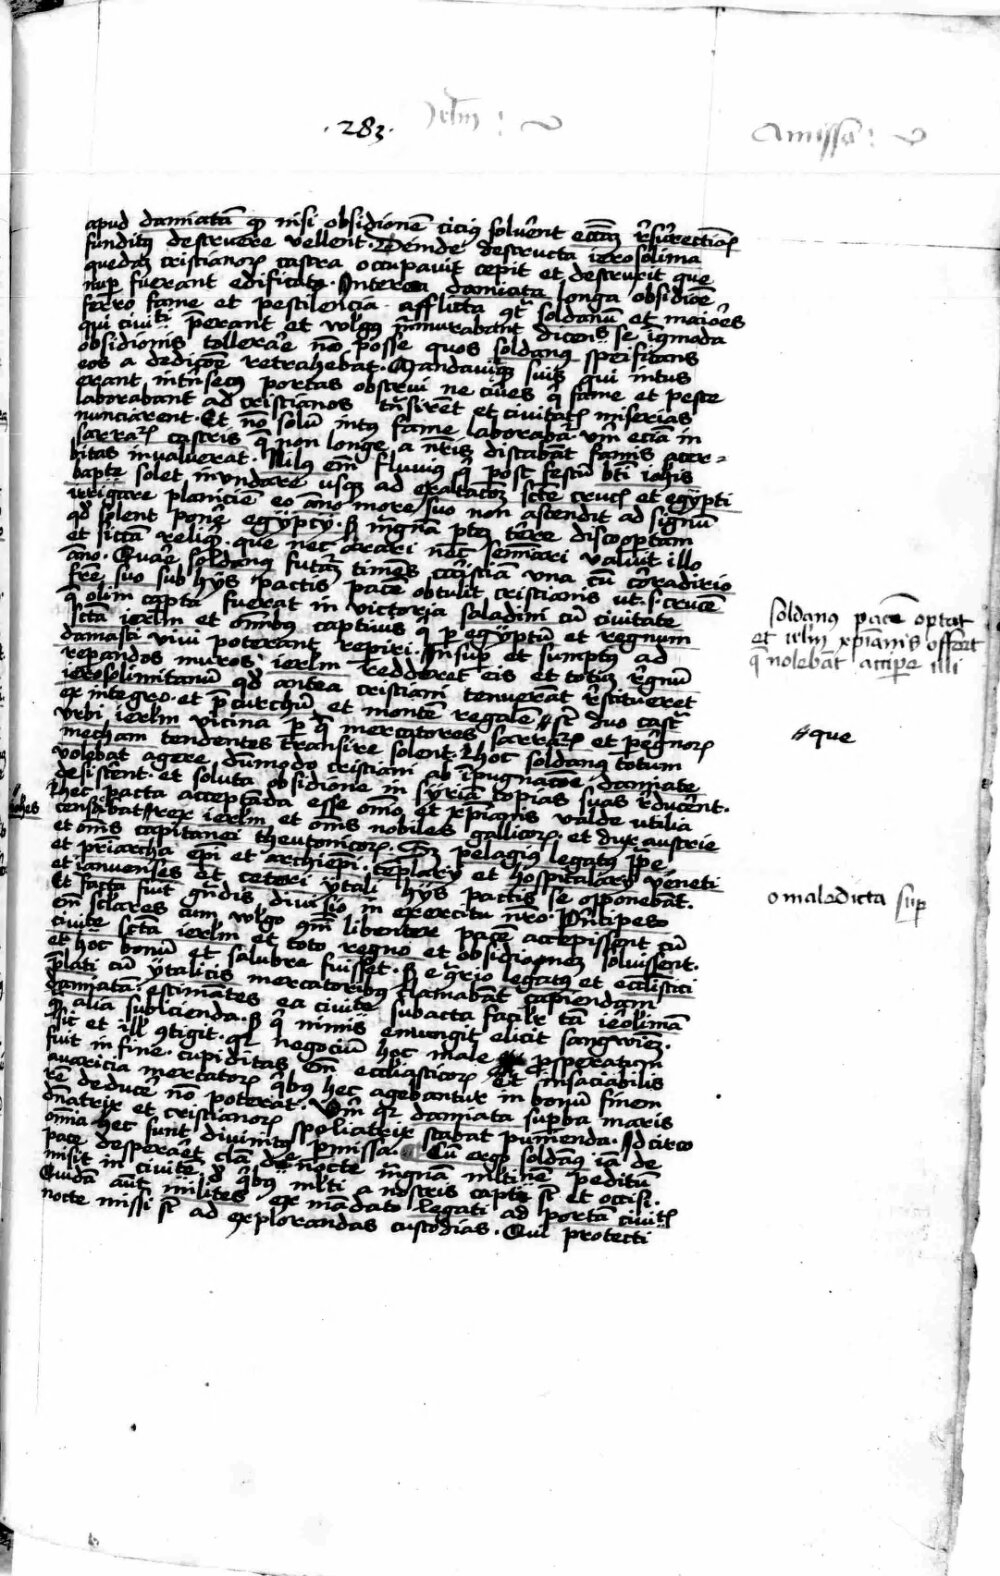 .283. Jrlm :
Amissa :
apud damiatā qd nisi obsidionē cicius solverit eccam rsurectiois
funditus destruere vellent. Deinde destructa ierosolima
quedam cristianorum castra occupavit cepit et destruxit que
nup fuerant edificata. Interea damiata longa obsidioe
ferro fame et pestilencia afflicta ctra soldanū et maiores
qui civiti perant et volgus murmurabant dicens se iqmoda
obsidionis tollerare nō posse quos soldanus specificans
eos a dedicoe retrahebat. Mandavitq suis qui intus
erant intrinsecus portas obstrui ne cives q fame et peste
laborabant ad cristianos trāsirēt et civitatis miserias
nunciarent. Et nō solū intus fame laborabāt vm eciā in
sarracenorum castris q non longe a nris distabāt famis acer-
bitas invaluerat. Nilus em fluvius q post festū bti iohis
baptste solet invndare usq ad exaltacōem scte crucis et egypti
irrigare planiciem eo āno more suo non ascendit ad signū
qd solent ponere egyptij. S magnā ptem terre discooptam
et siccā reliqt. que nec arari nec seminari valuit illo
āno. Quare soldanus futurā timens carestiā una cū coradino
fre suo sub hys pactis pacē obtulit cristianis ut s. crucē
q olim capta fuerat in victoria saladini cū civitate
sctā ierlm et omibus captivis q p egyptū et regnum
damasci vivi poterant repiri. Insup et sumptus ad
repandos muros ierlm redderet eis et totū regnū
ierosolimitanū qd antea cristiani tenuerāt rstitueret
ex integro. et p curchū et montē regalē sr duo castra
vrbi ierlm vicina p q mercatores sarracenorum et peginorum
mecham tendentes transire solent. Hoc soldanus totum
volebat agere dummodo cristiani ab ipugnacoe damiate
desisterent et soluta obsidione in syriā copias suas reducerent.
Hec pacta acceptāda esse omio et xpianis valde utilia
iohes
censebat rex ierlm et omēs nobiles gallicorum et dux austrie
et omēs capitanei theutonicorum. Sed pelagius legatus ppe
et priarcha epi et archiepi templarij et hospitalarij veneti
et ianuenses et ceteri ytali hys pactis se opponebāt.
Et facta fuit grādis divisio in exercitu nro. Principes
em sclares cum volgo qm libentere pacē accepissent cū
civite sctā ierlm et toto regno et obsidionem solvissent.
et hoc bonū et salubre fuisset. S e grio legatus et ecclistici
plati cū ytalicis mercatoribus clamabāt capiendam
damiatā: estimātes ea civite subacta faciliter tā ierolimā
q alia subicienda. S q nimis emungit elicit sangwinē.
Sic et illi ctigit. qr negocium hoc male psperatum
fuit in fine. cupiditas em ecclisticorum et insaciabilis
avaricia mercatorum qbus hec agebantur in bonū finem
rē deducē nō poterat. Vm qr damiata supba maris
dnatrix et cristianorum spoliatrix stabat punienda. Idcirco
omnia hec sunt divinitus pmissa. Cū ergo soldanus iā de
pace desperaret clā de nocte magnā mltinē peditū
misit in civite d qbus mlti a nostris capti st et occisi.
Quidā aut milites ex mādato legati ad portā civitis
nocte missi st ad explorandas custodias. Qui protecti
soldanus pacē optat
et irlm xpianis offert
q nolebāt accipe illi
que
o maledicta sup